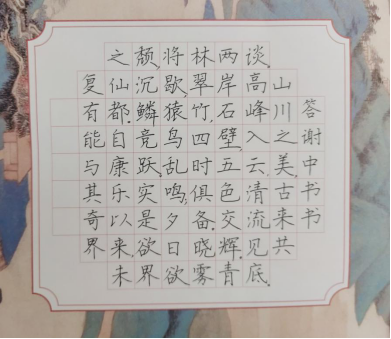 答谢中书书
山川之美,古来共
谈。高峰入云,清流见底。
两岸石壁,五色交辉。青
林翠竹,四时俱备。晓雾
将歇,猿鸟乱鸣;夕日欲
颓,沉鳞竞跃,实是欲界
之仙都。自康乐以来,未
复有能与其奇界